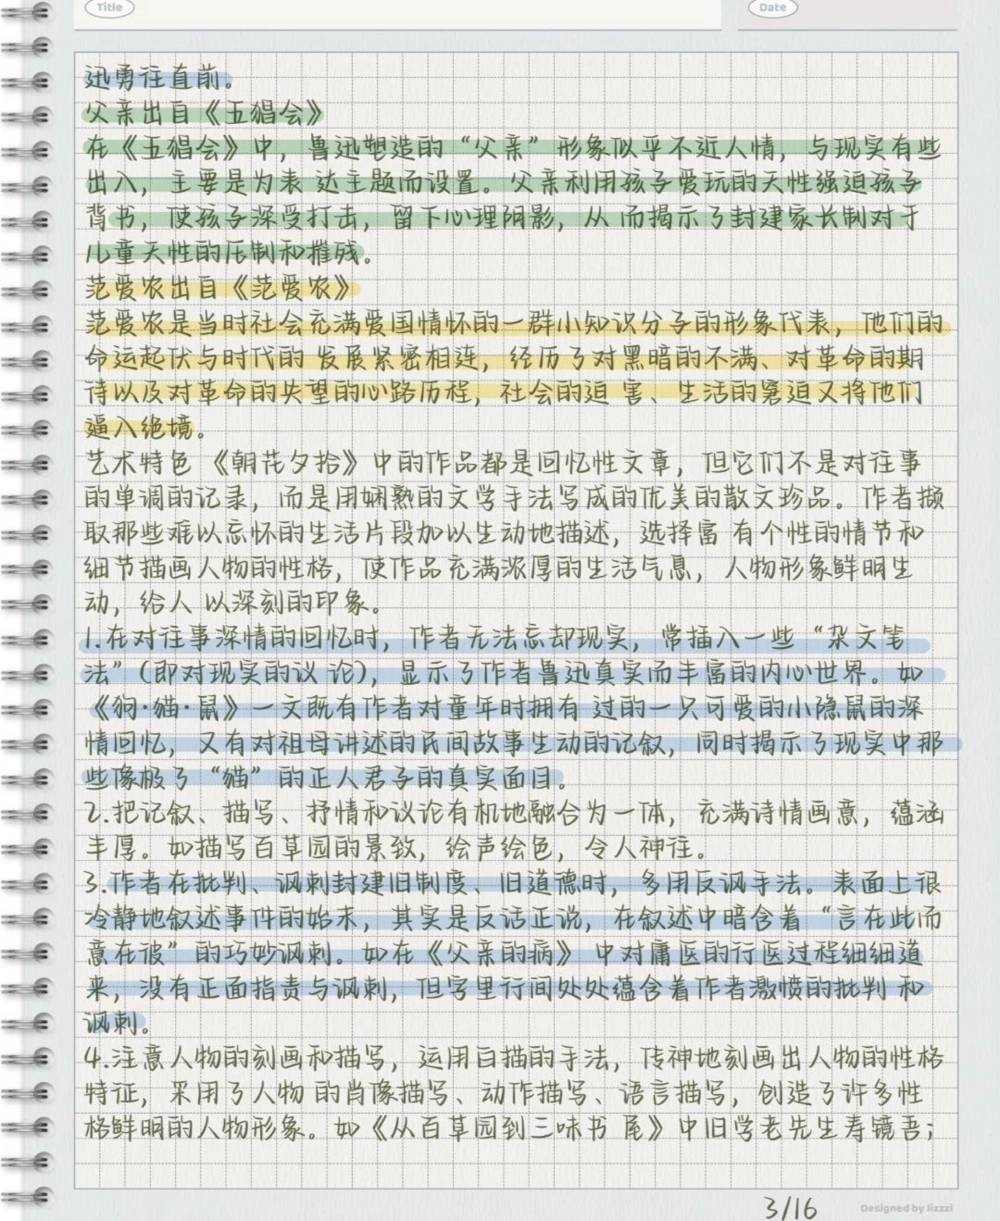 Title
Date
迅勇往直前。
父亲出自《五猖会》
在《五猖会》中，鲁迅塑造的“父亲”形象似乎不近人情，与现实有些
出入，主要是为表 达主题而设置。父亲利用孩子爱玩的天性强迫孩子
背书，使孩子深受打击，留下心理阴影，从 而揭示了封建家长制对于
儿童天性的压制和摧残。
范爱农出自《范爱农》
范爱农是当时社会充满爱国情怀的一群小知识分子的形象代表，他们的
命运起伏与时代的 发展紧密相连，经历了对黑暗的不满、对革命的期
待以及对革命的失望的心路历程，社会的迫 害、生活的窘迫又将他们
逼入绝境。
艺术特色 《朝花夕拾》中的作品都是回忆性文章，但它们不是对往事
的单调的记录，而是用娴熟的文学手法写成的优美的散文珍品。作者撷
取那些难以忘怀的生活片段加以生动地描述，选择富 有个性的情节和
细节描画人物的性格，使作品充满浓厚的生活气息，人物形象鲜明生
动，给人 以深刻的印象。
1.在对往事深情的回忆时，作者无法忘却现实，常插入一些“杂文笔
法”（即对现实的议 论），显示了作者鲁迅真实而丰富的内心世界。如
《狗·猫·鼠》一文既有作者对童年时拥有 过的一只可爱的小隐鼠的深
情回忆，又有对祖母讲述的民间故事生动的记叙，同时揭示了现实中那
些像极了“猫”的正人君子的真实面目。
2.把记叙、描写、抒情和议论有机地融合为一体，充满诗情画意，蕴涵
丰厚。如描写百草园的景致，绘声绘色，令人神往。
3.作者在批判、讽刺封建旧制度、旧道德时，多用反讽手法。表面上很
冷静地叙述事件的始末，其实是反话正说，在叙述中暗含着“言在此而
意在彼”的巧妙讽刺。如在《父亲的病》 中对庸医的行医过程细细道
来，没有正面指责与讽刺，但字里行间处处蕴含着作者激愤的批判 和
讽刺。
4.注意人物的刻画和描写，运用白描的手法，传神地刻画出人物的性格
特征，采用了人物 的肖像描写、动作描写、语言描写，创造了许多性
格鲜明的人物形象。如《从百草园到三味书 屋》中旧学老先生寿镜吾；
3/16
Designed by lizzzi